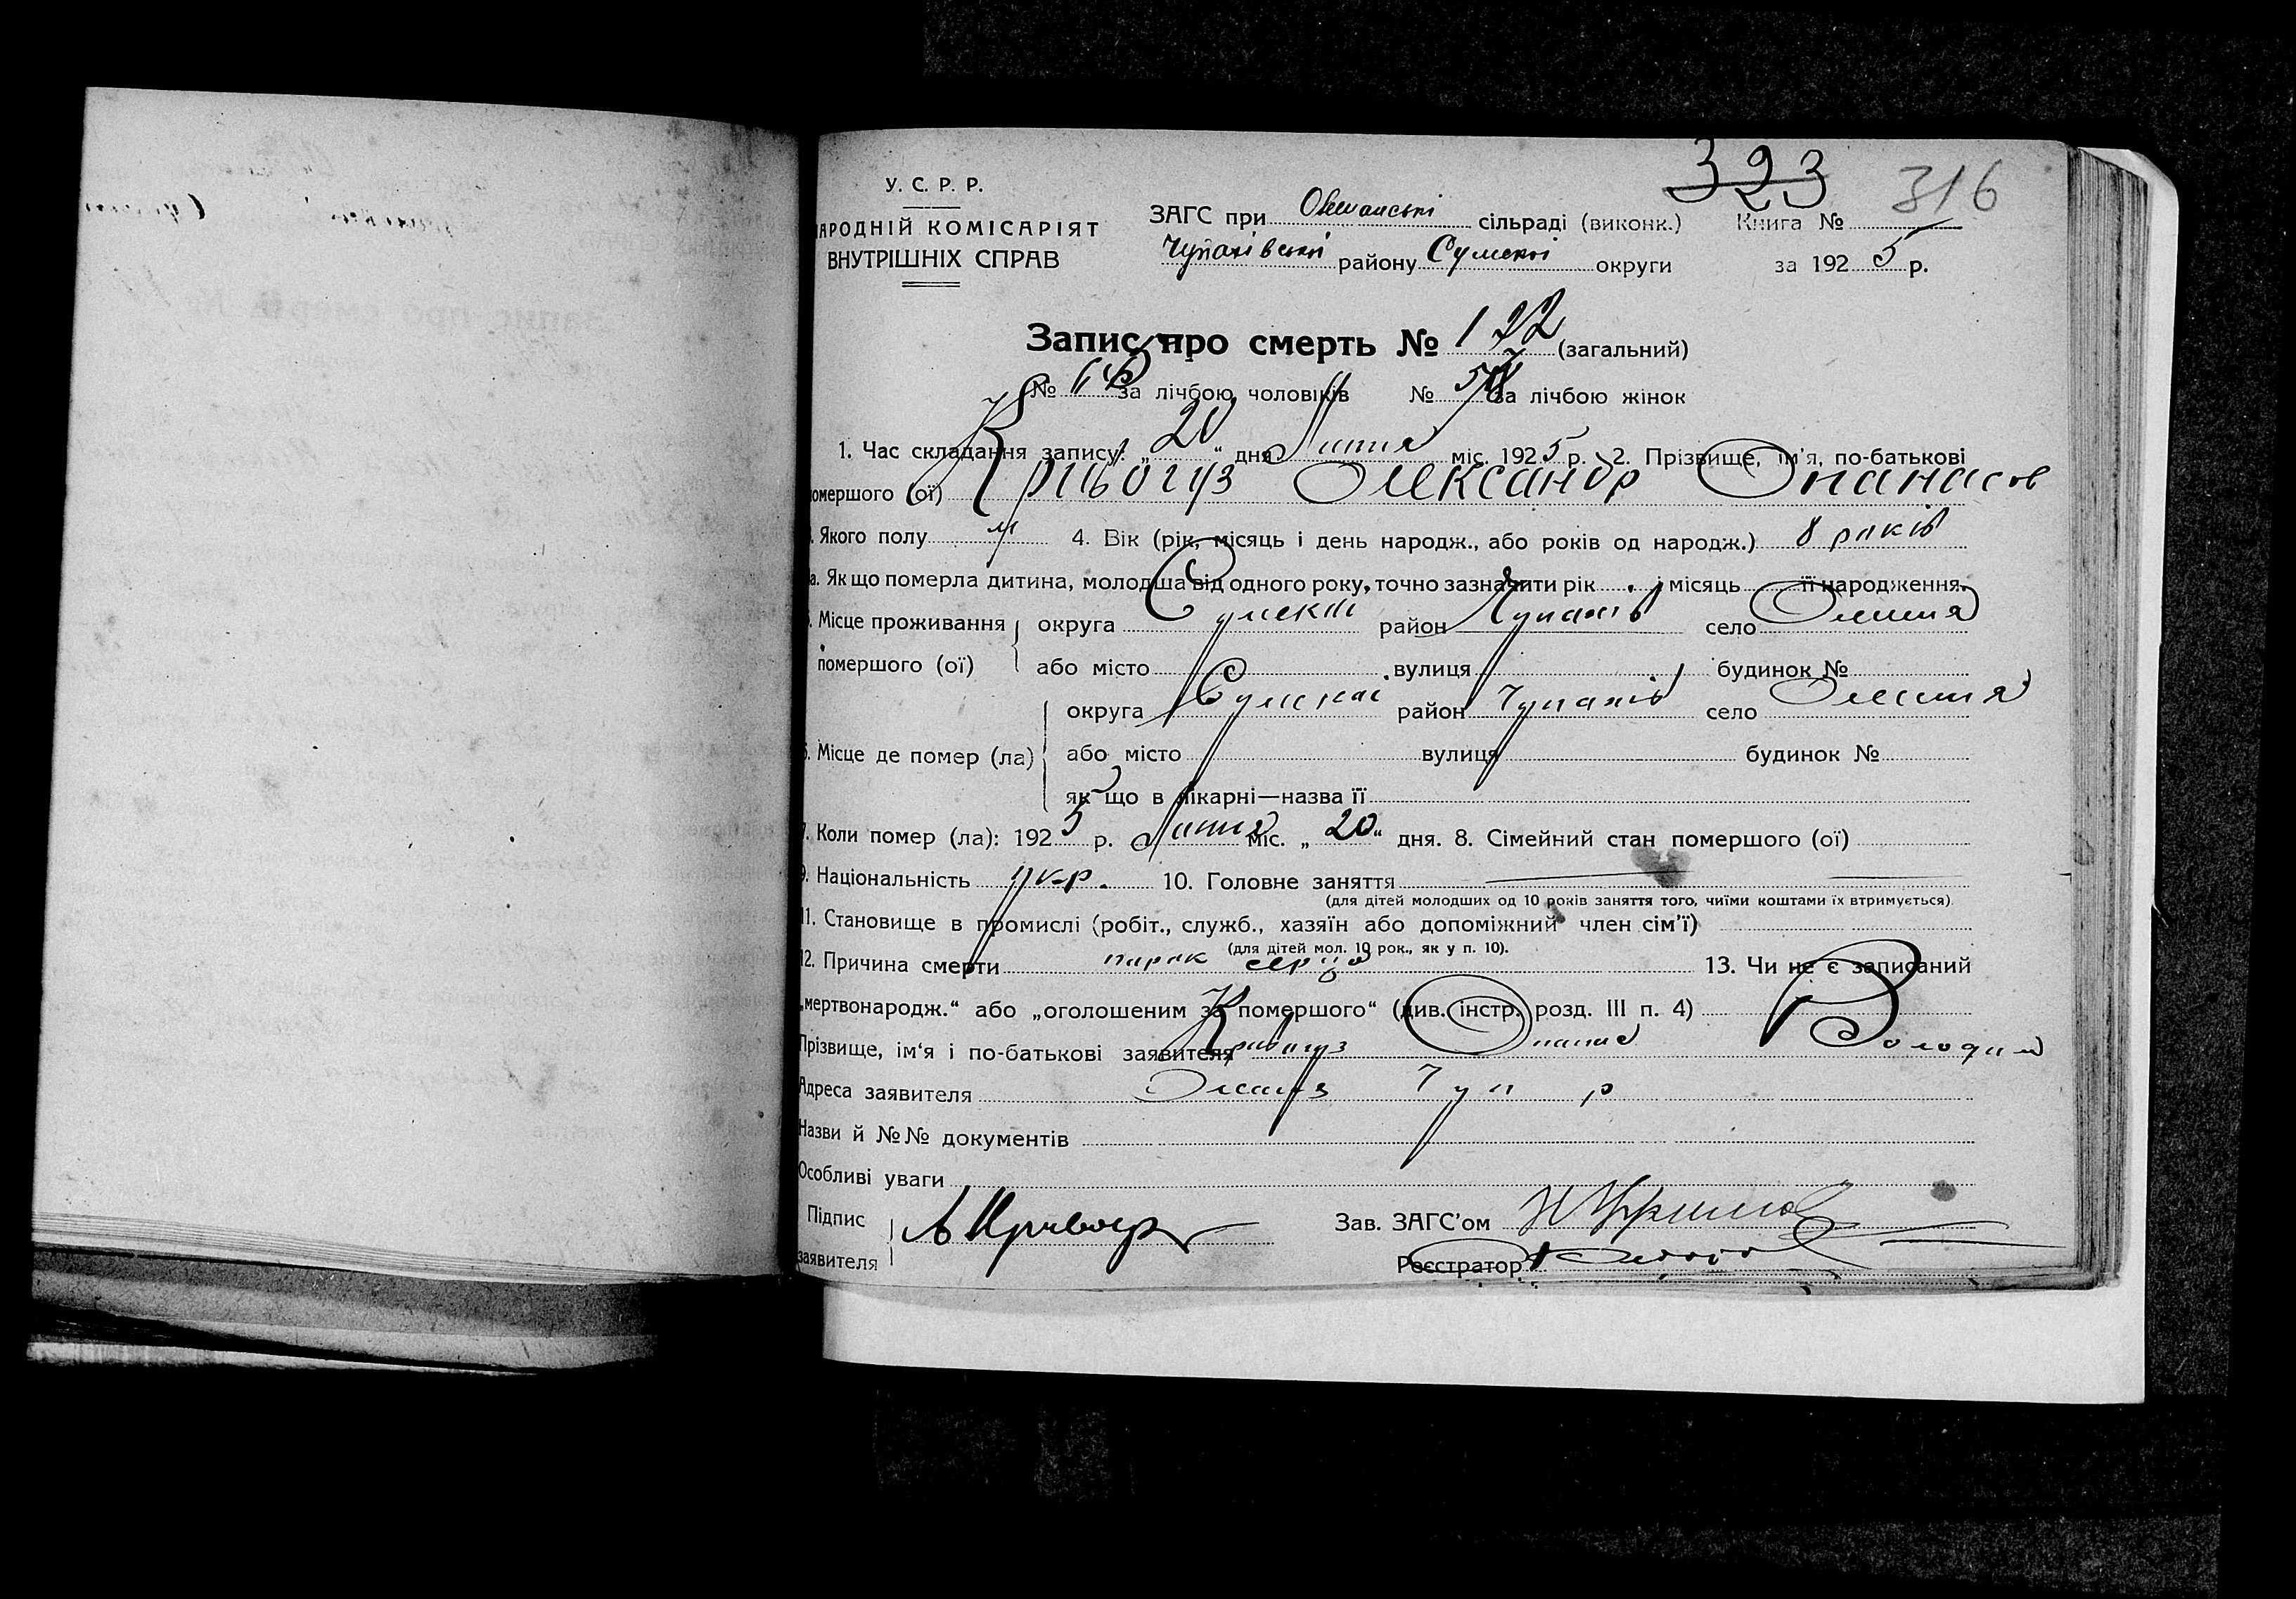 323 316
У. С. Р. Р.
НАРОДНІЙ КОМІСАРІЯТ
ВНУТРІШНІХ СПРАВ
ЗАГС при сільраді (виконк.) Книга №
Чупахівської району Сумської округи за 1925 р.
Запис про смерть № 122 (загальний)
№ за лічбою чоловіків № за лічбою жінок
1. Час складання запису: „20“ дня Липня міс. 1925 р. 2. Прізвище, ім'я, по-батькові
помершого (ої) Кривогуз Олександр Опанасов
3. Якого полу м 4. Вік (рік, місяць і день народж., або років од народж.) 8 років
а. Якщо померла дитина, молодша від одного року, точно зазначити рік і місяць її народження.
5. Місце проживання округа Сумській район Чупахів село Олешня
помершого (ої) або місто вулиця будинок №
округа Сумській район Чупахів село Олешня
6. Місце де помер (ла) або місто вулиця будинок №
як що в лікарні—назва її
7. Коли помер (ла): 1925 р. Липня міс. „20“ дня. 8. Сімейний стан помершого (ої)
9. Національність укр. 10. Головне заняття
(для дітей молодших од 10 років заняття того, чиїми коштами їх втримується)
11. Становище в промислі (робіт., служб., хазяїн або допоміжний член сім'ї)
(для дітей мол. 10 рок., як у п. 10).
12. Причина смерти 13. Чи не є записаний
„мертвонародж.“ або „оголошеним за помершого“ (див. інстр. розд. III п. 4)
Прізвище, ім'я і по-батькові заявителя Кривогуз Опанас Володим
Адреса заявителя Чуп р
Назви й №№ документів
Особливі уваги
Підпис
заявителя А Кривогуз
Зав. ЗАГС'ом
Реєстратор